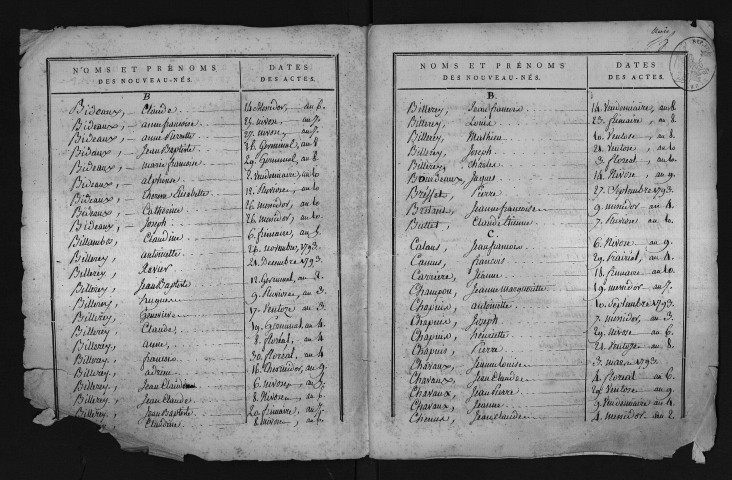 NOMS ET PRÉNOMS
DES NOUVEAU-NÉS.
DATES
DES ACTES.
B
Bideaux, Claude 14 Messidor, an 6.
Bideaux, anne françoise 25 nivose, an 7.
Bideaux, anne Pierrette 27 nivose, an 7.
Bideaux, Jean Baptiste 16 Germinal, an 8
Bideaux, marie françoise 29 Germinal, an 8.
Bideaux, alphonse 2 Vendemiaire, an 10
Bideaux, Therese Elisabette 12 Niviose, an 10.
Bideaux, Catherine 26 messidor, an 10
Bideaux, Joseph 26 messidor, an 10.
Billambos, Claudine 6 frimaire, an 8.
Billerey, antoinette 24 novembre, 1793.
Billerey, Xavier 21 Decembre 1793.
Billerey, Jean Baptiste 12 Germinal, an 2.
Billerey, hugues 9 Nivose, an 3.
Billerey, Genevieve 17 Ventoze an 3.
Billerey, Claude 19 Germinal, an 4.
Billerey, anne 8 floréal, an 4.
Billerey, françois 30 floréal, an 4
Billerey, adrien 16 Thermidor, an 9.
Billerey, Jean Claude 6 nivose, an 5.
Billerey, Jean Claude 8 Nivose, an 6.
Billerey, Jean Baptiste 20 frimaire, an 7.
Billerey, Claudine 8 nivose, an 6.
NOMS ET PRÉNOMS
DES NOUVEAU-NÉS.
DATES
DES ACTES.
B.
Billerey, Jean françois 14 Vendemiaire, an 8.
Billerey, Louis 23 frimaire, an 8.
Billerey, Mathieu 10 Ventose, an 8.
Billerey, Joseph 21 Ventose, an 10.
Billerey, Charles 3 floreal, an 10.
Bourdeaux, Jaques 14 Nivose, an 9.
Brisset, Pierre 27 Septembre 1793.
Bretand, Jeanne françoise 9 messidor, an 4.
Buttet, Claude Etienne 7 Nivose, an 10.
C.
Calaus, Jean francois 6 Nivose, an 9.
Camus, francois 29 Prairial, an 4.
Carriere, Jeanne 18 frimaire, an 10.
Champon, Jeanne Marguerite 19 messidor, an 7.
Chapuis, antoinette 10 Septembre 1793.
Chapuis, Joseph 7 messidor, an 3.
Chapuis, henriette 29 Nivose, an 6.
Chapuis, Pierre 21 Ventoze, an 8.
Chavaux, Jeanne Louise 3 mars, 1793.
Chavaux, Jean Claude 4 floreal, an 6.
Chavaux, Jean Pierre 29 Ventose, an 9.
Chavaux, Jeanne 9 Vendemiaire, an 4.
Chenus, Jean Claude 4 messidor, an 2.